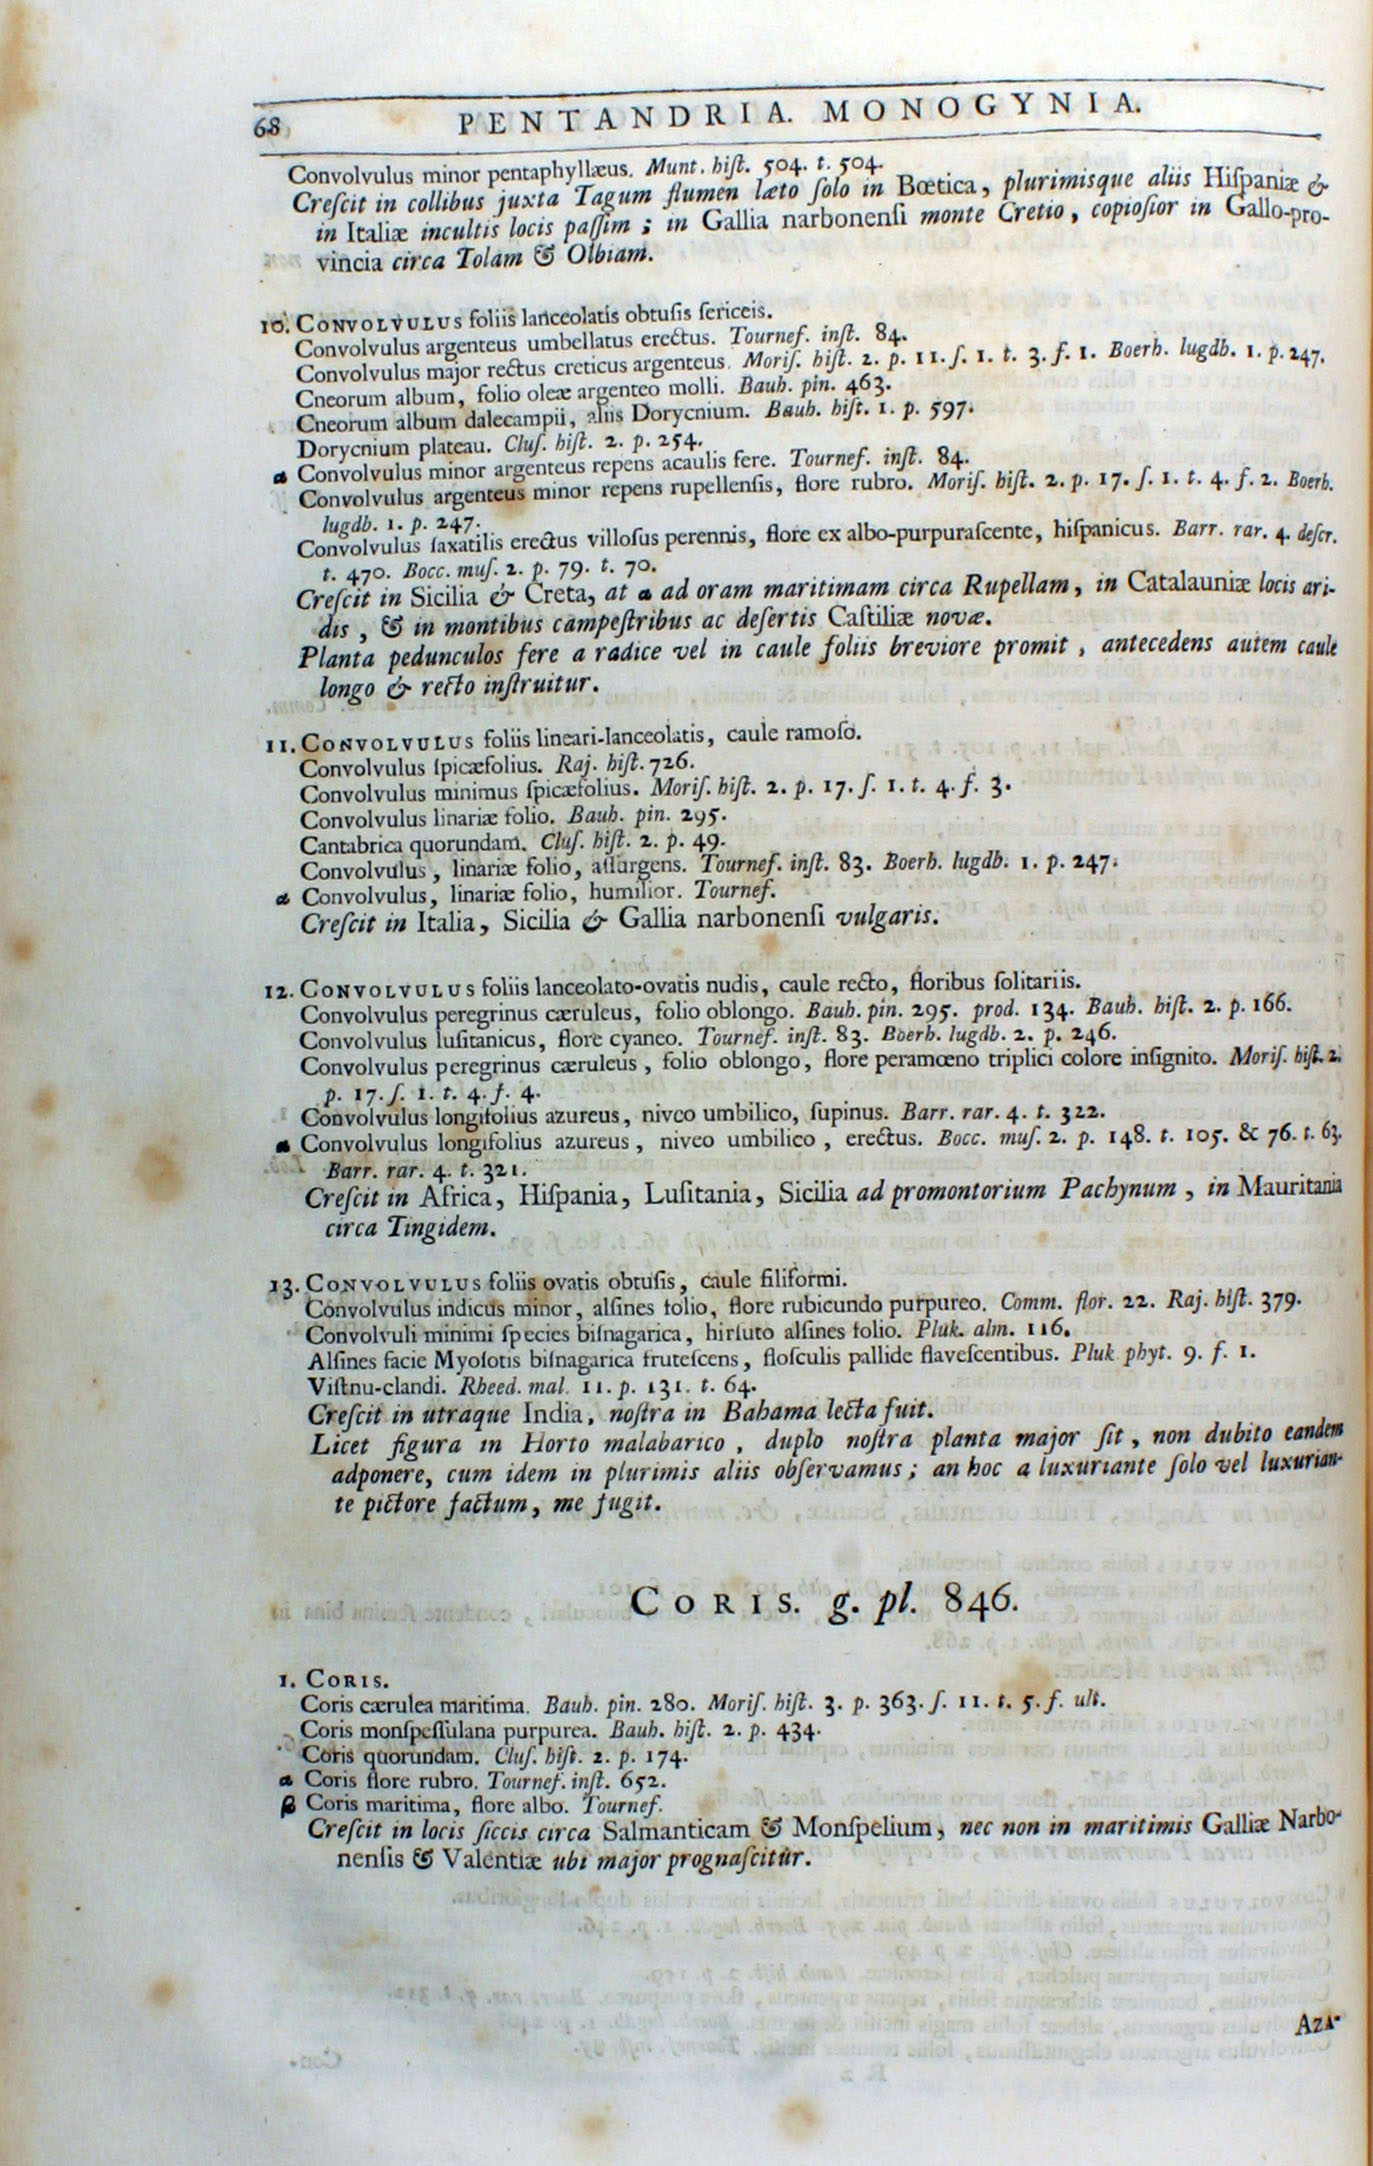 68 PENTANDRIA. MONOGYNIA.
Convolvulus minor pentaphyllæus. Munt. hiſt. 504. t. 504.
Creſcit in collibus juxta Tagum flumen læto ſolo in Bœtica, plurimisque aliis Hiſpaniæ &
in Italiæ incultis locis paſſim; in Gallia narbonenſi monte Cretio, copioſior in Gallo-pro-
vincia circa Tolam & Olbiam.
10. CONVOLVULUS foliis lanceolatis obtuſis ſericeis.
Convolvulus argenteus umbellatus erectus. Tournef. inſt. 84.
Convolvulus major rectus creticus argenteus. Moriſ. hiſt. 2. p. 11. ſ. 1. t. 3. f. 1. Boerh. lugdb. 1. p. 247.
Cneorum album, folio oleæ argenteo molli. Bauh. pin. 463.
Cneorum album dalecampii, aliis Dorycnium. Bauh. hiſt. 1. p. 597.
Dorycnium plateau. Cluſ. hiſt. 2. p. 254.
α Convolvulus minor argenteus repens acaulis fere. Tournef. inſt. 84.
Convolvulus argenteus minor repens rupellenſis, flore rubro. Moriſ. hiſt. 2. p. 17. ſ. 1. t. 4. f. 2. Boerh.
lugdb. 1. p. 247.
Convolvulus ſaxatilis erectus villoſus perennis, flore ex albo-purpuraſcente, hiſpanicus. Barr. rar. 4. deſcr.
t. 470. Bocc. muſ. 2. p. 79. t. 70.
Creſcit in Sicilia & Creta, at α ad oram maritimam circa Rupellam, in Catalauniæ locis ari-
dis, & in montibus campeſtribus ac deſertis Caſtiliæ novæ.
Planta pedunculos fere a radice vel in caule foliis breviore promit, antecedens autem caule
longo & recto inſtruitur.
11. CONVOLVULUS foliis lineari-lanceolatis, caule ramoſo.
Convolvulus ſpicæfolius. Raj. hiſt. 726.
Convolvulus minimus ſpicæfolius. Moriſ. hiſt. 2. p. 17. ſ. 1. t. 4. f. 3.
Convolvulus linariæ folio. Bauh. pin. 295.
Cantabrica quorundam. Cluſ. hiſt. 2. p. 49.
Convolvulus, linariæ folio, aſſurgens. Tournef. inſt. 83. Boerh. lugdb. 1. p. 247.
α Convolvulus, linariæ folio, humilior. Tournef.
Creſcit in Italia, Sicilia & Gallia narbonenſi vulgaris.
12. CONVOLVULUS foliis lanceolato-ovatis nudis, caule recto, floribus ſolitariis.
Convolvulus peregrinus cæruleus, folio oblongo. Bauh. pin. 295. prod. 134. Bauh. hiſt. 2. p. 166.
Convolvulus luſitanicus, flore cyaneo. Tournef. inſt. 83. Boerh. lugdb. 2. p. 246.
Convolvulus peregrinus cæruleus, folio oblongo, flore peramœno triplici colore inſignito. Moriſ. hiſt. 2.
p. 17. ſ. 1. t. 4. f. 4.
Convolvulus longifolius azureus, niveo umbilico, ſupinus. Barr. rar. 4. t. 322.
α Convolvulus longifolius azureus, niveo umbilico, erectus. Bocc. muſ. 2. p. 148. t. 105. & 76. t. 63.
Barr. rar. 4. t. 321.
Creſcit in Africa, Hiſpania, Luſitania, Sicilia ad promontorium Pachynum, in Mauritania
circa Tingidem.
13. CONVOLVULUS foliis ovatis obtuſis, caule filiformi.
Convolvulus indicus minor, alſines folio, flore rubicundo purpureo. Comm. flor. 22. Raj. hiſt. 379.
Convolvuli minimi ſpecies biſnagarica, hirſuto alſines folio. Pluk. alm. 116.
Alſines facie Myoſotis biſnagarica fruteſcens, floſculis pallide flaveſcentibus. Pluk phyt. 9. f. 1.
Viſtnu-clandi. Rheed. mal. 11. p. 131. t. 64.
Creſcit in utraque India, noſtra in Bahama lecta fuit.
Licet figura in Horto malabarico, duplo noſtra planta major ſit, non dubito eandem
adponere, cum idem in plurimis aliis obſervamus; an hoc a luxuriante ſolo vel luxurian-
te pictore factum, me fugit.
CORIS. g. pl. 846.
1. CORIS.
Coris cærulea maritima. Bauh. pin. 280. Moriſ. hiſt. 3. p. 363. ſ. 11. t. 5. f. ult.
Coris monſpeſſulana purpurea. Bauh. hiſt. 2. p. 434.
Coris quorundam. Cluſ. hiſt. 2. p. 174.
α Coris flore rubro. Tournef. inſt. 652.
β Coris maritima, flore albo. Tournef.
Creſcit in locis ſiccis circa Salmanticam & Monſpelium, nec non in maritimis Galliæ Narbo-
nenſis & Valentiæ ubi major prognaſcitur.
AZA-